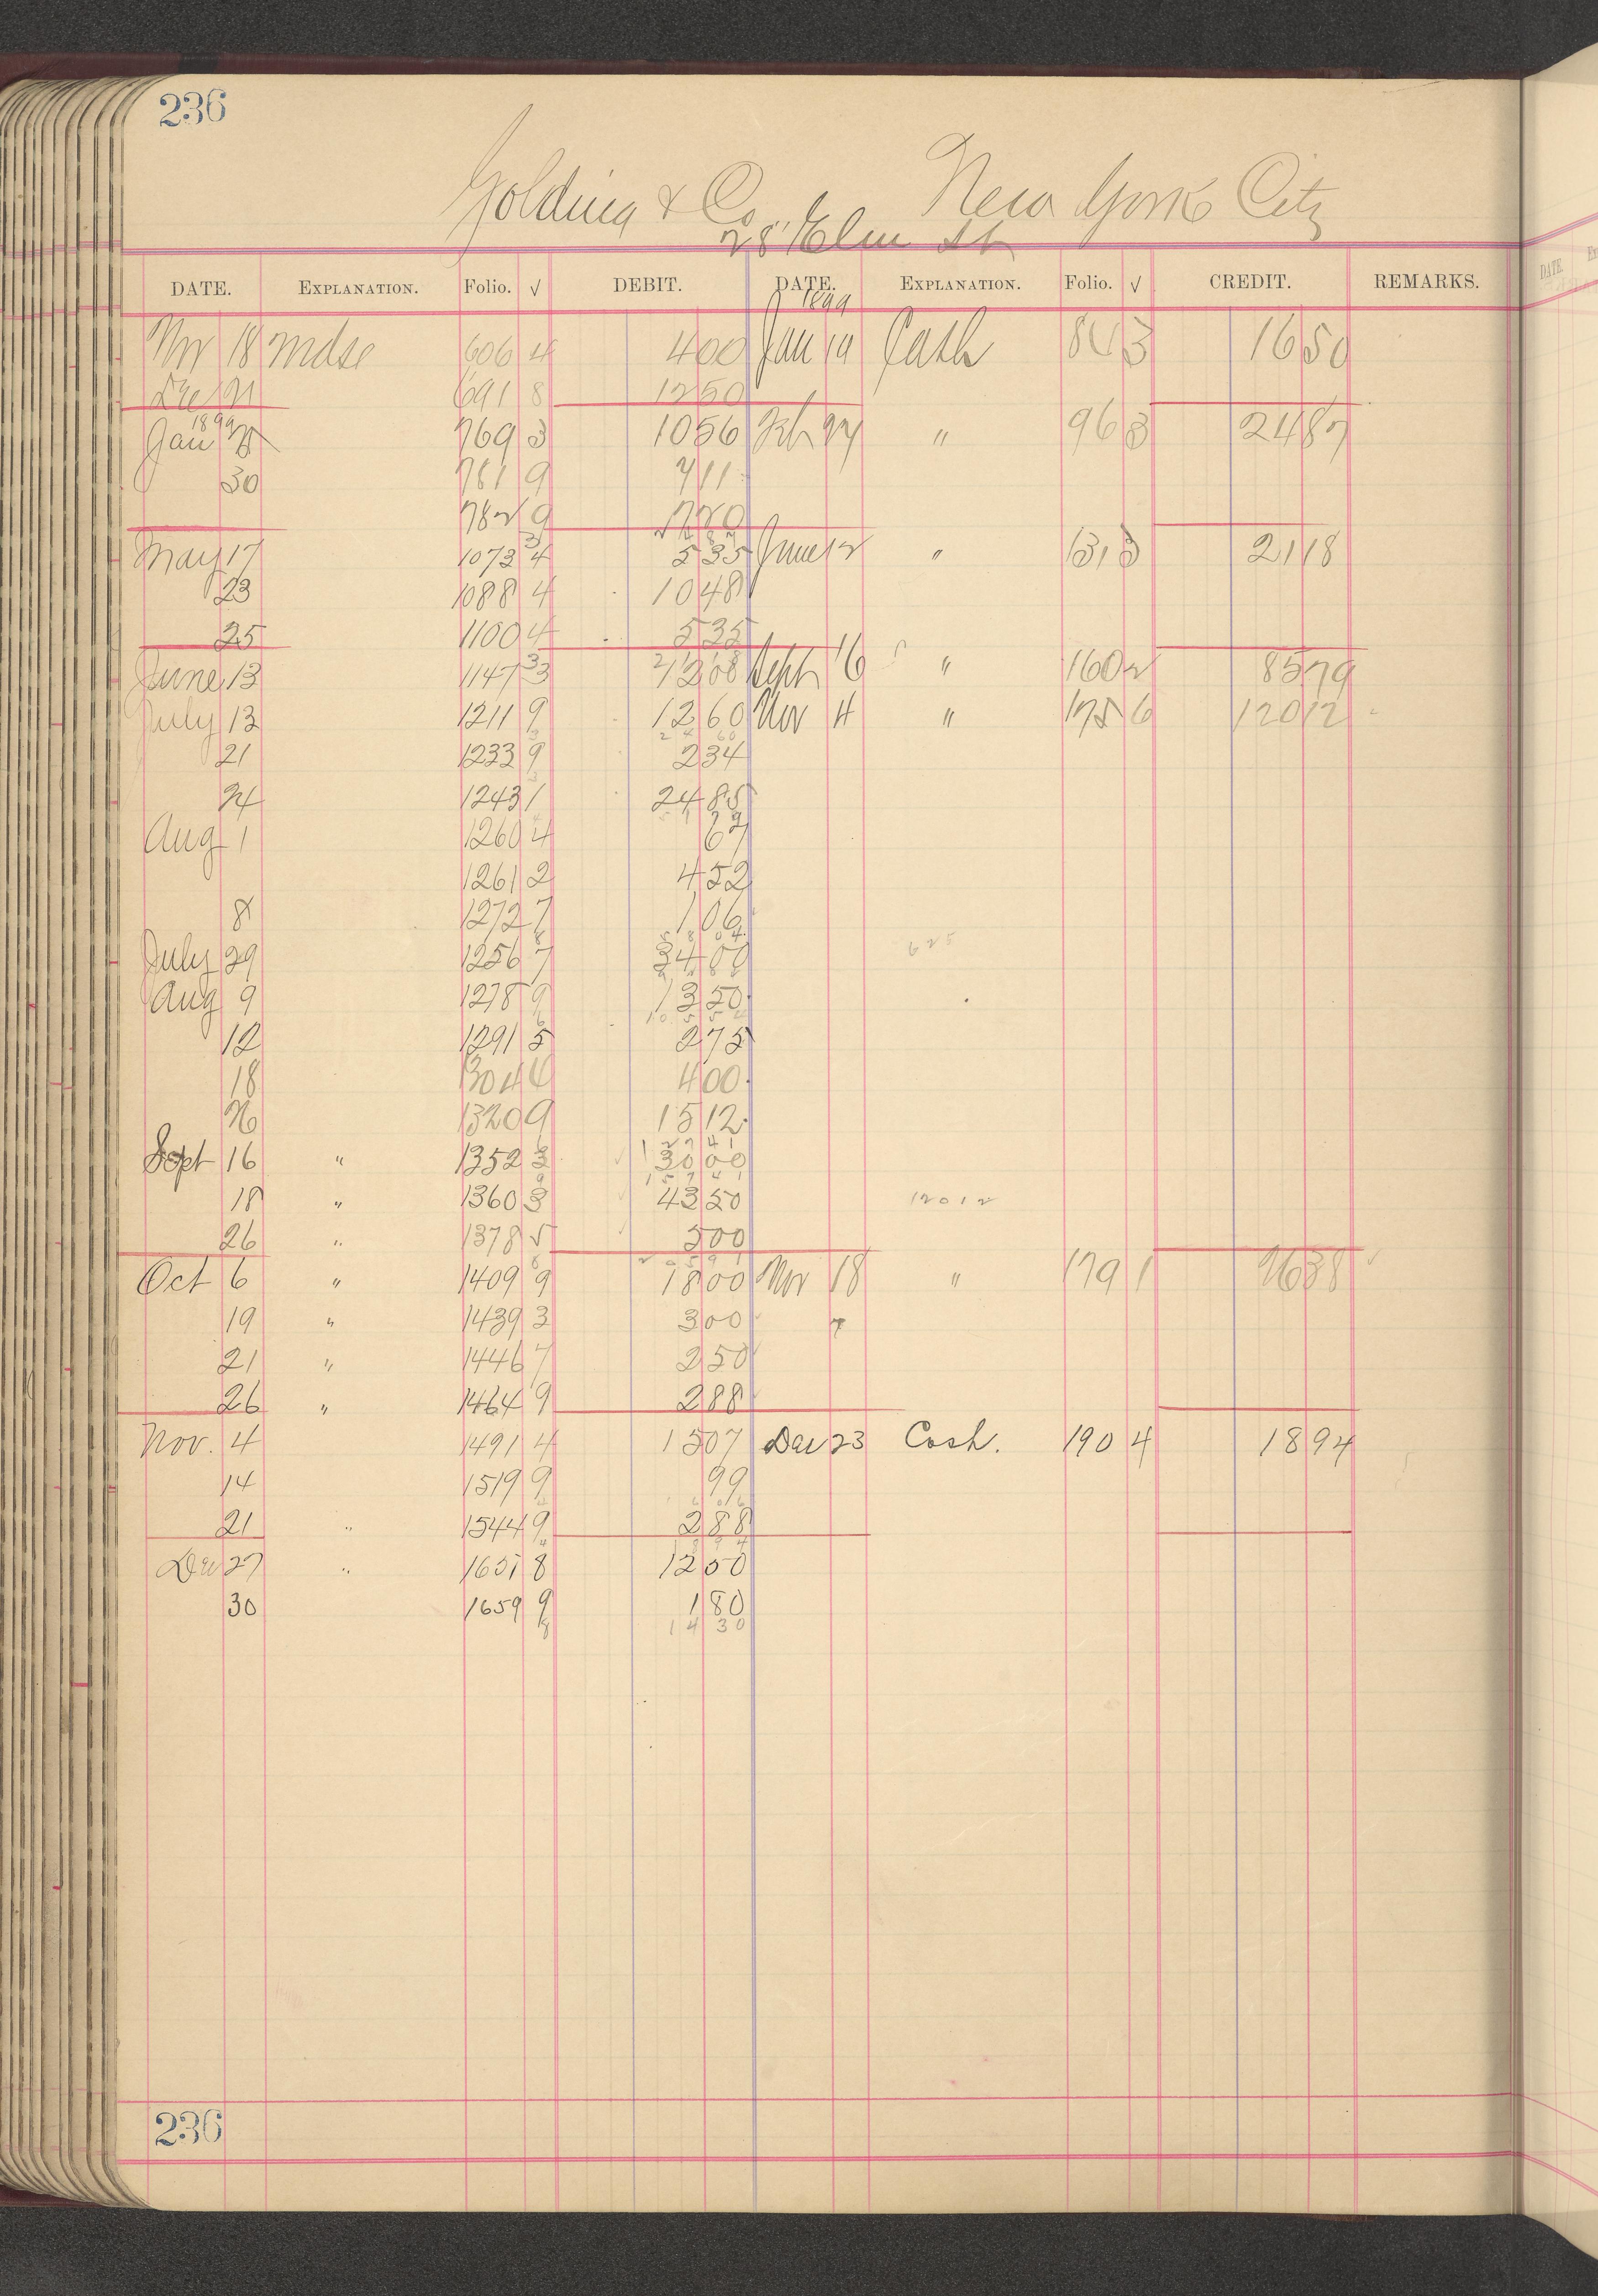 236
Golding & Co. New York City
28 Elm St
DATE. EXPLANATION. Folio. √ DEBIT. DATE. EXPLANATION. Folio. √ CREDIT. REMARKS.
1899
Nov 18 Mdse 606 4 400 Jan 19 Cash 843 1650
Dec 21 691 8 1250
1899
Jan 28 769 3 1056 Feb 27 " 963 2487
30 781 9 711
782 9 720
May 17 1073 4 535 June 12 " 1313 2118
23 1088 4 1048
25 1100 4 535
June 13 1147 3 1208 Sept 16 " 1602 8579
July 13 1211 9 1260 Nov 4 " 1756 12012
21 1233 9 234
24 1243 1 2485
Aug 1 1260 4 67
1261 2 452
8 1272 7 106
July 29 1256 7 3400 625
Aug 9 1278 9 1350
12 1291 5 275
18 1304 400
26 1320 9 1512
Sept 16 " 1352 3 3000
18 " 1360 3 4350 12012
26 " 1378 5 500
Oct 6 " 1409 9 1800 Nov 18 " 1791 2638
19 " 1439 3 300
21 " 1446 7 250
26 " 1464 9 288
Nov. 4 1491 4 1507 Dec 23 Cash. 190 4 1894
14 1519 9 99
21 " 1544 9 288
Dec 27 " 1651 8 1250
30 1659 9 180
8 1430
236